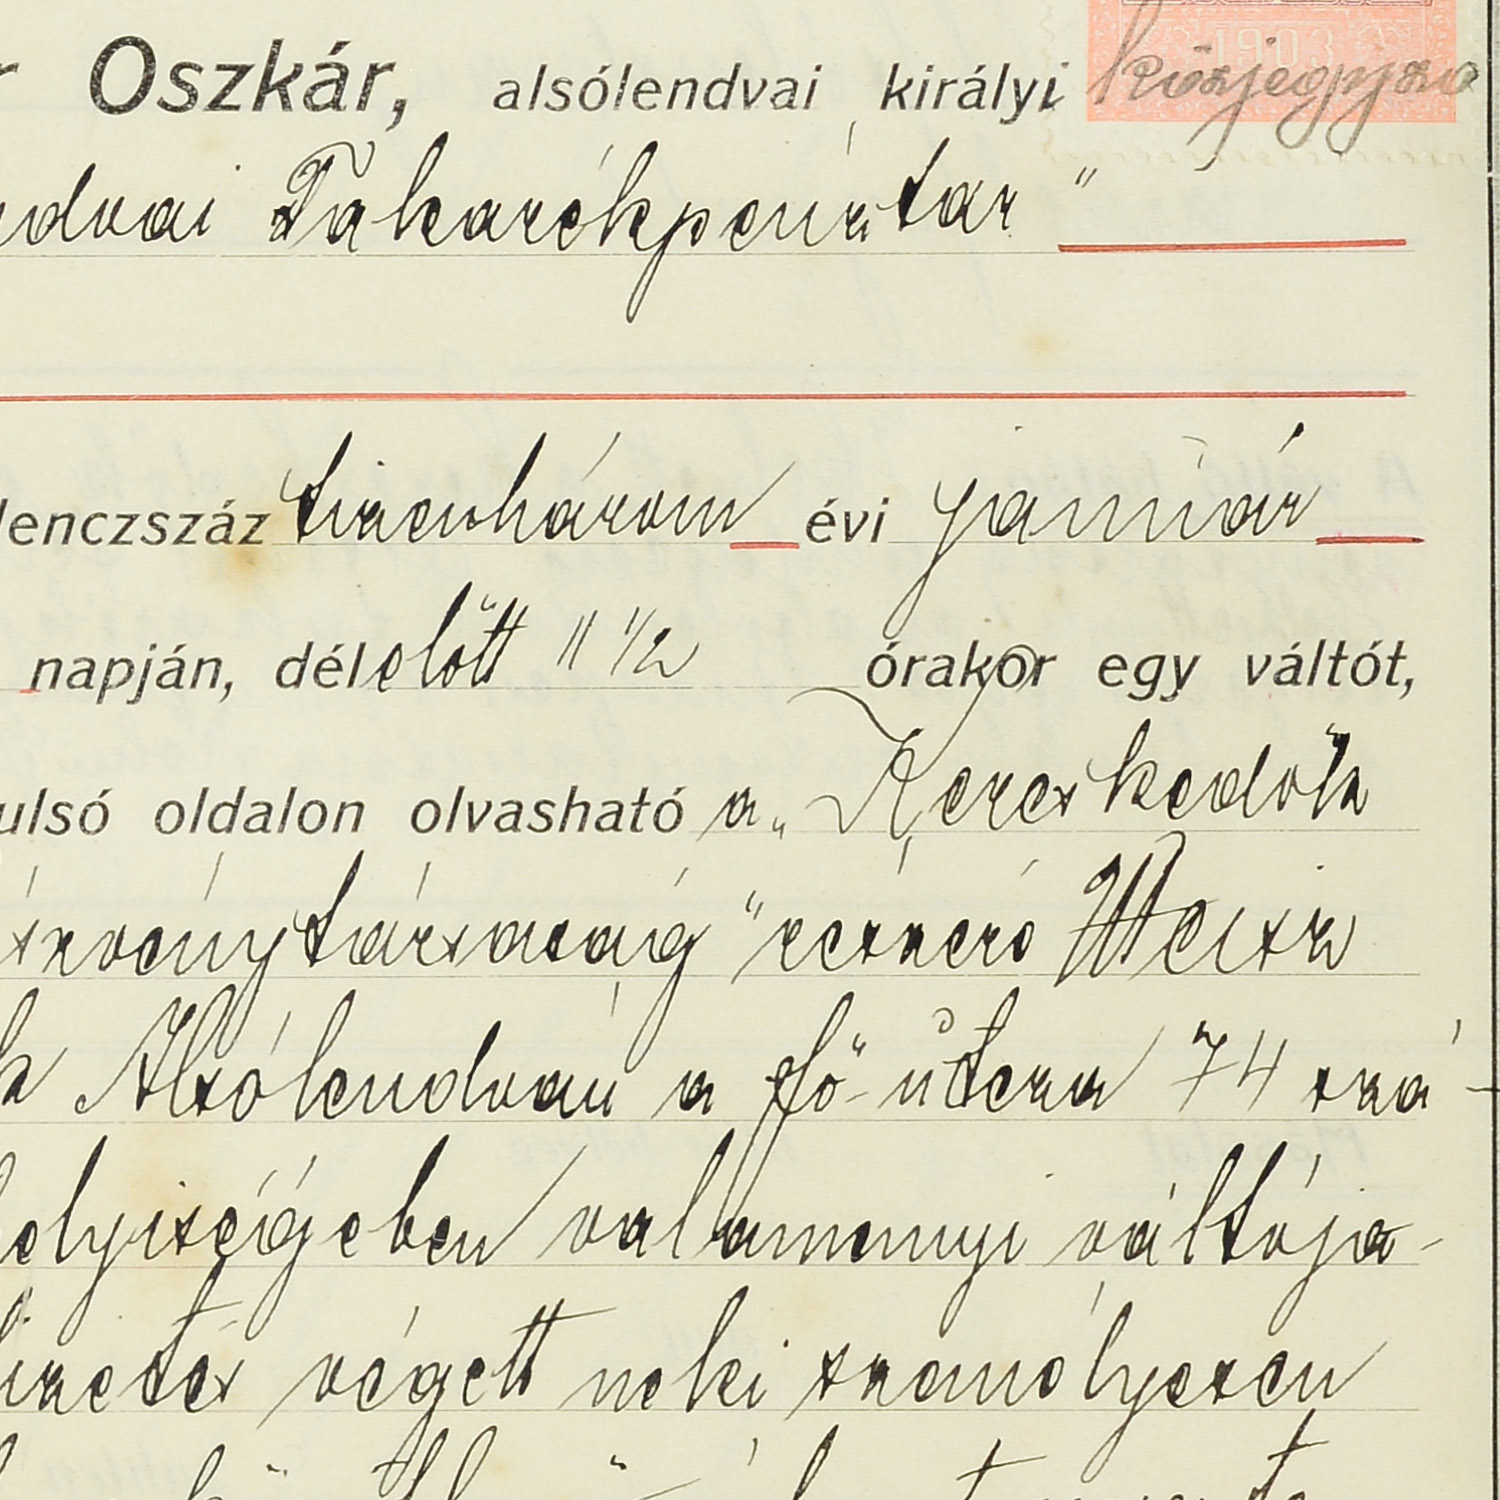 r Oszkár, alsólendvai királyi közjegyző
ndvai Takarékpénztár"
lenczszáz tizenhárom évi január
napján, délelőtt 11 1/2 órakor egy váltót,
ulsó oldalon olvasható a „Kereskedők
észvénytársaság" részéről Weisz
k Alsólendván a fő-útcza 74 szá-
helyiségében valamennyi váltója-
fizetés végett neki személyesen